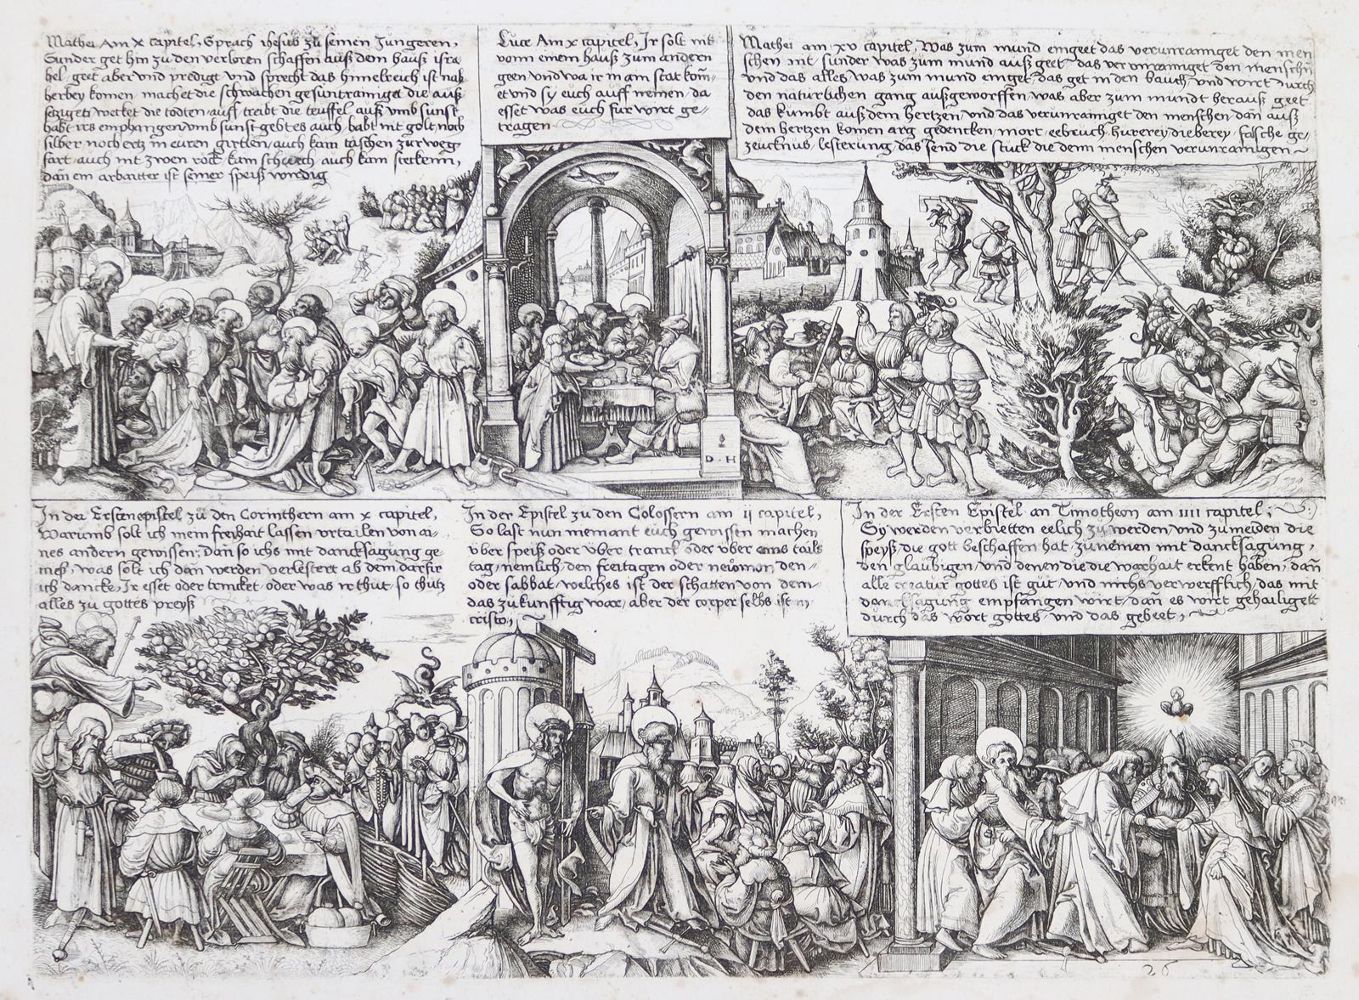 Mathei Am x capitel, Sprach ihesus zu seinen Jungeren,
Sunder get hin zu den verloren schaffen auß dem hauß isra
hel, geet aber und predigt und sprecht das himelreich ist nah
herbey komen machet die schwachen gesunt rainiget die auß
setzigen wecket die todten auß treibt die teuffel auß umb sunst
habt irs empfangen umb sunst gebt es auch habt nit golt noch
silber noch ertz in euren girtlen auch kain taschen zur weg
fart auch nit zwen röck kain schuech auch kain stecken,
dan ein arbaitter ist seiner speiß wirdig
Luce Am x capitel, Ir solt nit
vonn einem hauß zum andern
geen und wa ir in ain stat kom-
et und sy euch auff nemen da
esset was euch fur wirt ge-
tragen
Mathei am xv capitel, Was zum mund eingeet das verunrainiget den men
schen nit sunder was zum mund auß geet das verunrainiget den menschn
und das alles was zum mund einget das get in den bauch und wirt durch
den naturlichen gang außgeworffen was aber zum mundt herauß geet
das kumbt auß dem hertzen und das verunrainiget den menschen dan auß
dem hertzen komen arg gedencken mort eebruch hurerey dieberey falsche ge-
zeucknus lesterung das send die stuck die denn menschen verunrainigen
D H
In der Ersten epistel zu den Corinthern am x capitel,
Warumb solt ich mein freihait lassen urtailen von ai-
nes andern gewissen; dan so ichs mit dancksagung ge-
nieß, was solt ich dan werden verlestert ab dem darfir
ich dancke, Ir esset oder trincket oder was ir thut so thutz
alles zu gottes preyß
In der Epistel zu den Colossern am ii capitel,
So last nun niemant euch gewissen machen
uber speiß oder uber tranck oder uber ains tails
tag nemlich, den freitagen oder newmon, den-
oder sabbat welches ist der schatten von dem
das zukunfftig war, aber der corper selbs ist in
cristo,
In der Ersten Epistel an Timotheon am iiii capitel,
Sy werden verbietten eelich zu werden und zu meiden die
speyß, die gott beschaffen hat zu nemen mit dancksagung,
den glaubigen und denen die die warhait erkent haben, dan
alle creatur gottes ist gut und nichs verwerfflich, das mit
dancksagung empfangen wirt, dan es wirt gehailiget
durch das wort gottes und das gebeet,